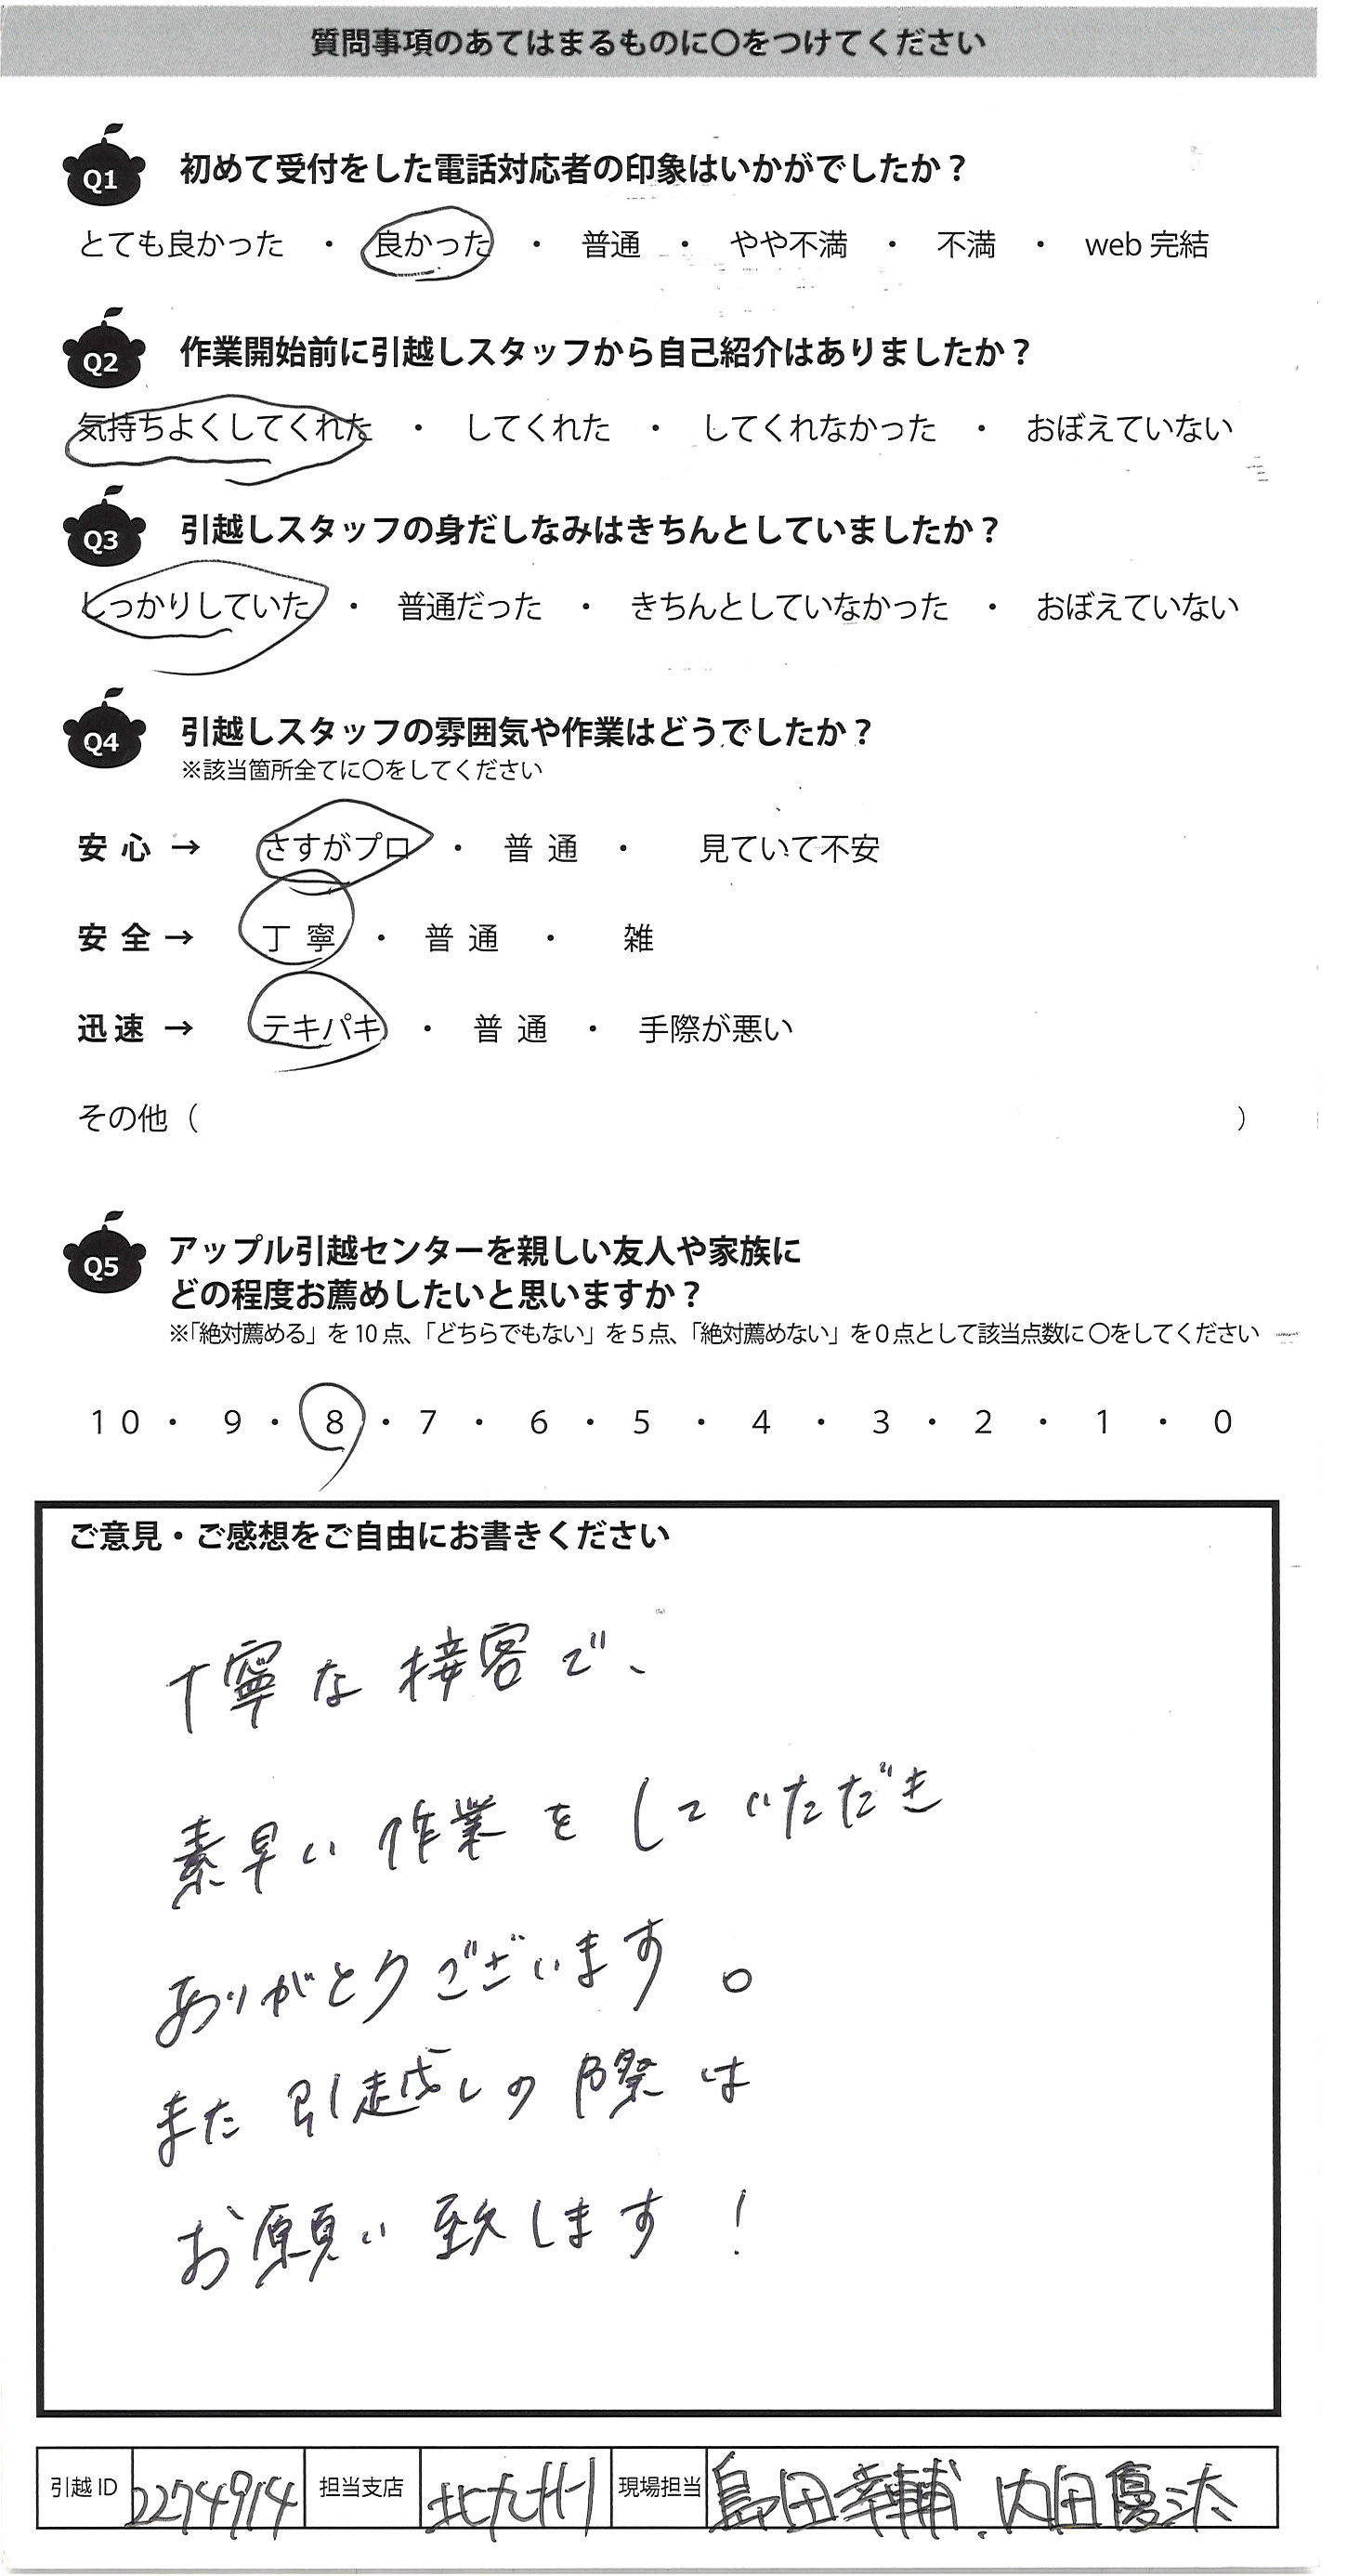 質問事項のあてはまるものに〇をつけてください
Q1 初めて受付をした電話対応者の印象はいかがでしたか？
とても良かった ・ 良かった ・ 普通 ・ やや不満 ・ 不満 ・ web 完結
Q2 作業開始前に引越しスタッフから自己紹介はありましたか？
気持ちよくしてくれた ・ してくれた ・ してくれなかった ・ おぼえていない
Q3 引越しスタッフの身だしなみはきちんとしていましたか？
しっかりしていた ・ 普通だった ・ きちんとしていなかった ・ おぼえていない
Q4 引越しスタッフの雰囲気や作業はどうでしたか？
※該当箇所全てに〇をしてください
安心 → さすがプロ ・ 普通 ・ 見ていて不安
安全 → 丁寧 ・ 普通 ・ 雑
迅速 → テキパキ ・ 普通 ・ 手際が悪い
その他（ ）
Q5 アップル引越センターを親しい友人や家族に
どの程度お薦めしたいと思いますか？
※「絶対薦める」を10点、「どちらでもない」を5点、「絶対薦めない」を0点として該当点数に〇をしてください
10 ・ 9 ・ 8 ・ 7 ・ 6 ・ 5 ・ 4 ・ 3 ・ 2 ・ 1 ・ 0
ご意見・ご感想をご自由にお書きください
丁寧な接客で、
素早い作業をしていただき
ありがとうございます。
また引越しの際は
お願い致します！
引越ID 2274914 担当支店 北九州 現場担当 島田幸輔．内田優汰